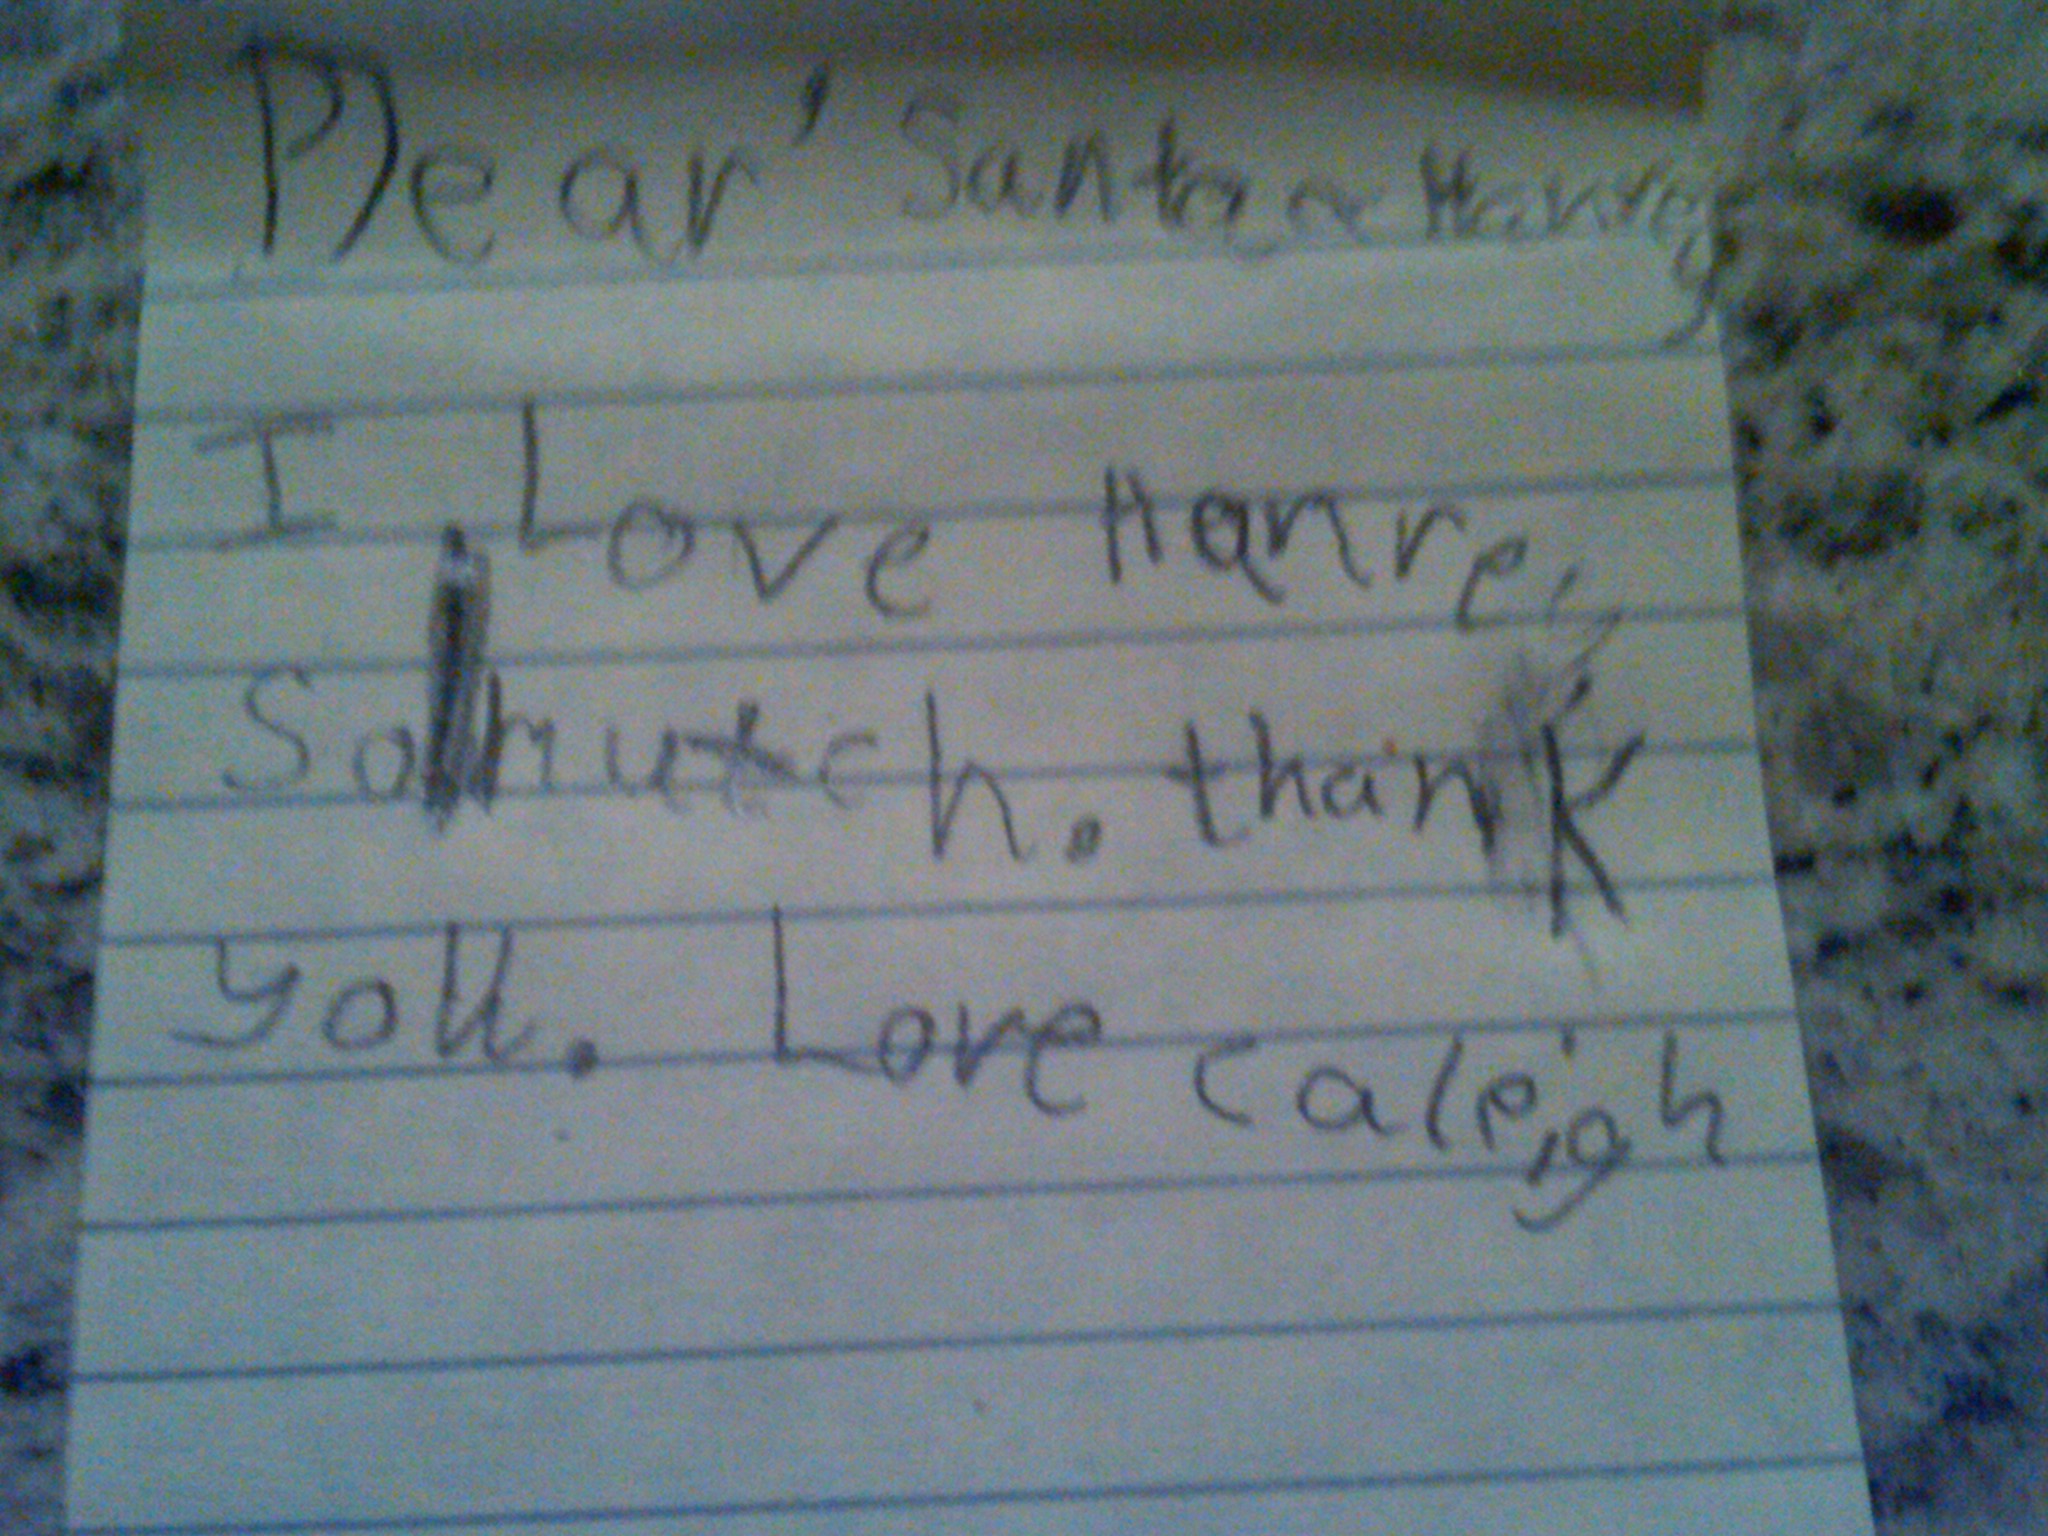 Dear' Santa
I Love Hanre,
So mutch. thank
you. Love caleigh